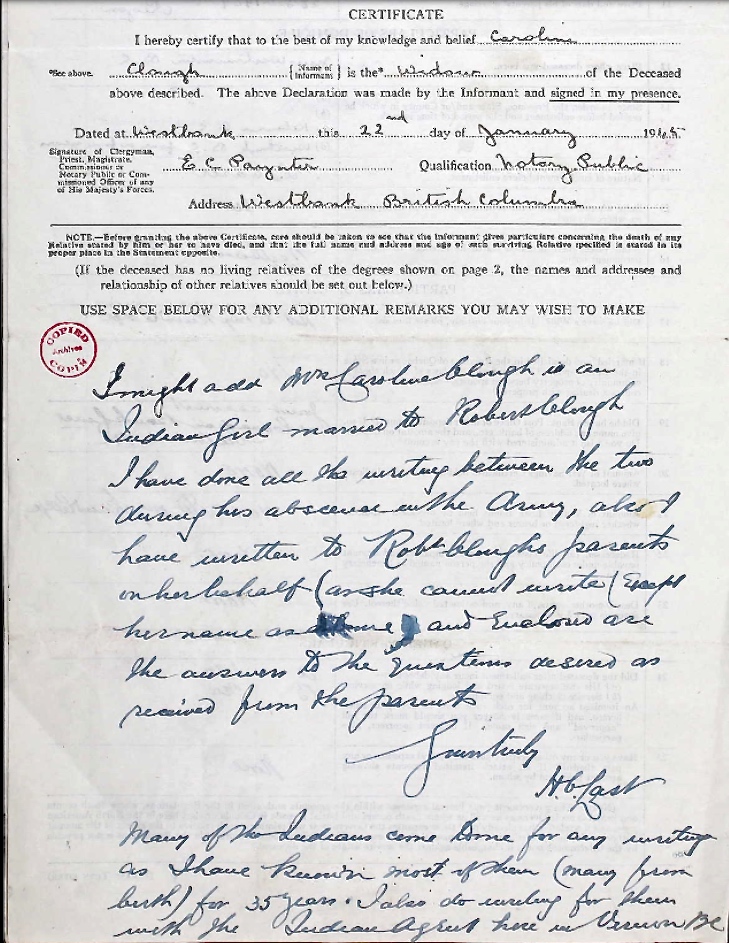 CERTIFICATE
I hereby certify that to the best of my knowledge and belief Caroline
*See above. Clough {Name of Informant} is the* Widow of the Deceased
above described. The above Declaration was made by the Informant and signed in my presence.
Dated at Westbank this 22nd day of January 1945
Signature of Clergyman,
Priest, Magistrate,
Commissioner or
Notary Public or Com-
missioned Officer of any
of His Majesty's Forces.
E C Paynter Qualification Notary Public
Address Westbank British Columbia
NOTE.—Before granting the above Certificate, care should be taken to see that the informant gives particulars concerning the death of any
Relative stated by him or her to have died, and that the full name and address and age of each surviving Relative specified is stated in its
proper place in the Statement opposite.
(If the deceased has no living relatives of the degrees shown on page 2, the names and addresses and
relationship of other relatives should be set out below.)
USE SPACE BELOW FOR ANY ADDITIONAL REMARKS YOU MAY WISH TO MAKE
COPIED
Archives
I might add Mrs Caroline Clough is an
Indian Girl married to Robert Clough
I have done all the writing between the two
during his absence in the Army, also I
have written to Robt Cloughs parents
on her behalf (as she cannot write (Except
her name as and Enclosed are
the answers to the Questions desired as
received from the parents
H.C. Last
Many of the Indians come to me for any writing
as I have known most of them (many from
birth) for 35 years. I also do writing for them
with the Indian Agent here in Vernon BC